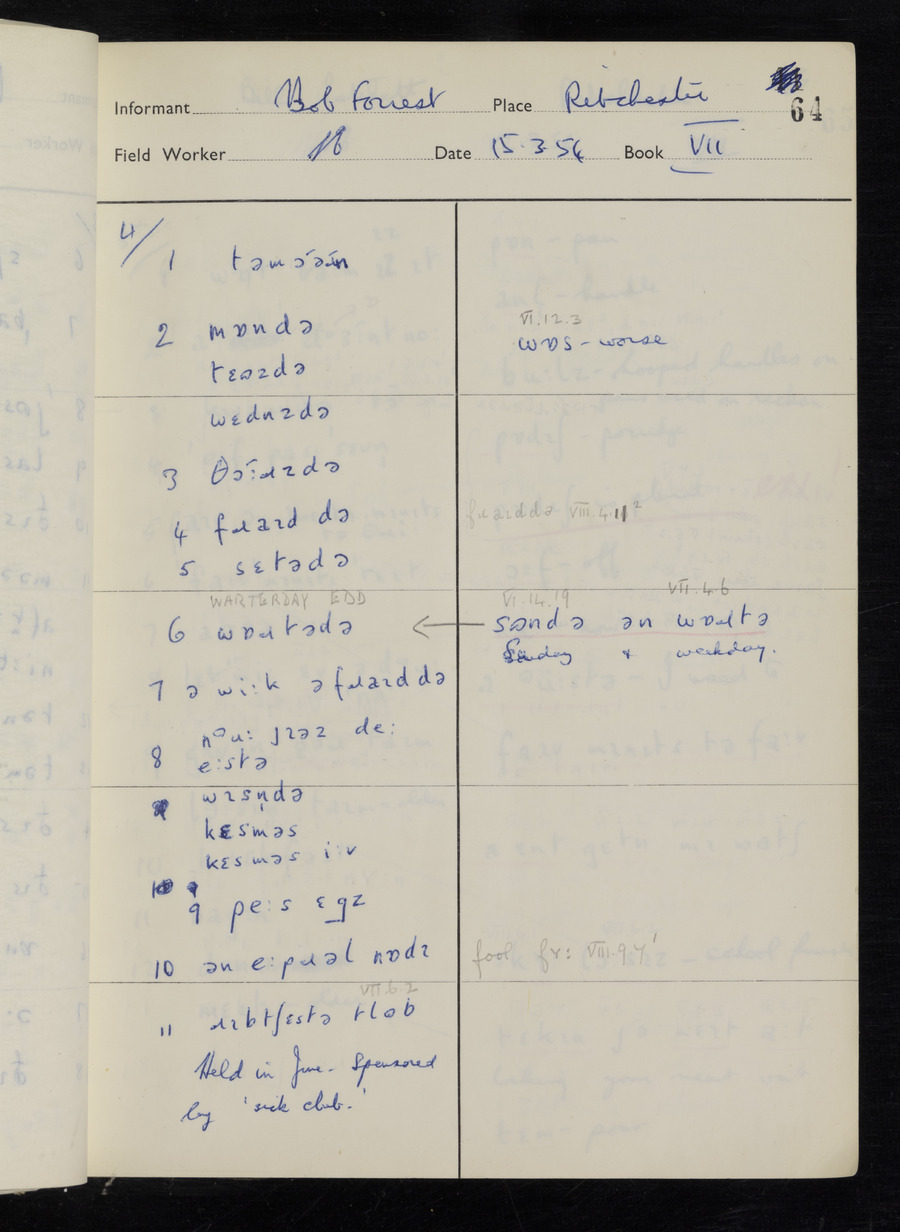 Informant Bob Forrest Place Ribchester 64
Field Worker Date 15.3.54 Book VII
4/
1 təmɔə̄ɹn
2 mɒndə
tɛʊzdə
wɛdnzdə
3 θə̄:ɹzdə
4 fɹaɪd də
5 sɛtədə
WARTERDAY EDD
6 wɒɹtədə
7 ə wi:k əfɹaɪddə
8 nᵒu: jɪəz de:
e:stə
wɪsn̩də
kɛsməs
kɛsməs i:v
9 pe:s ɛgz
10 ən e:pɹəl nɒdɪ
VII.6.2
11 ɹɪbtʃɛstə tlob
Held in June. Sponsored
by 'sick club.'
VI.12.3
wɒs - worse
fɹaɪddə VIII.4.11²
VI.14.19 VII.4.6
sɵndə ən wɒɹtə
Sunday & weekday.
fool fɤ: VIII.9.7'